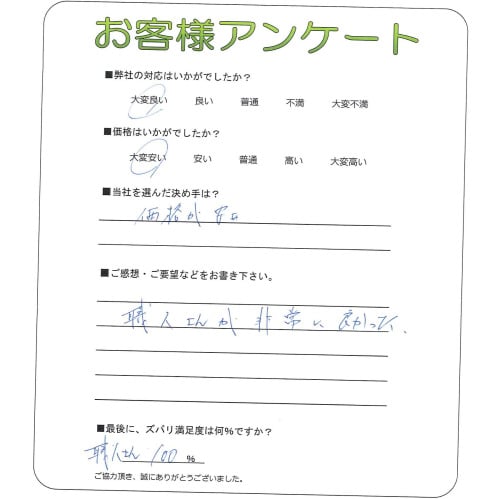 お客様アンケート
■弊社の対応はいかがでしたか？
大変良い 良い 普通 不満 大変不満
■価格はいかがでしたか？
大変安い 安い 普通 高い 大変高い
■当社を選んだ決め手は？
価格が安
■ご感想・ご要望などをお書き下さい。
職人さんが非常に良かった。
■最後に、ズバリ満足度は何％ですか？
職人さん 100 ％
ご協力頂き、誠にありがとうございました。